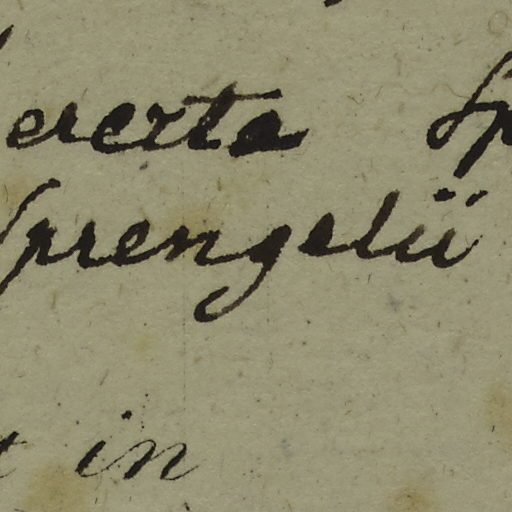 erecta Sp
Sprengelii
t in